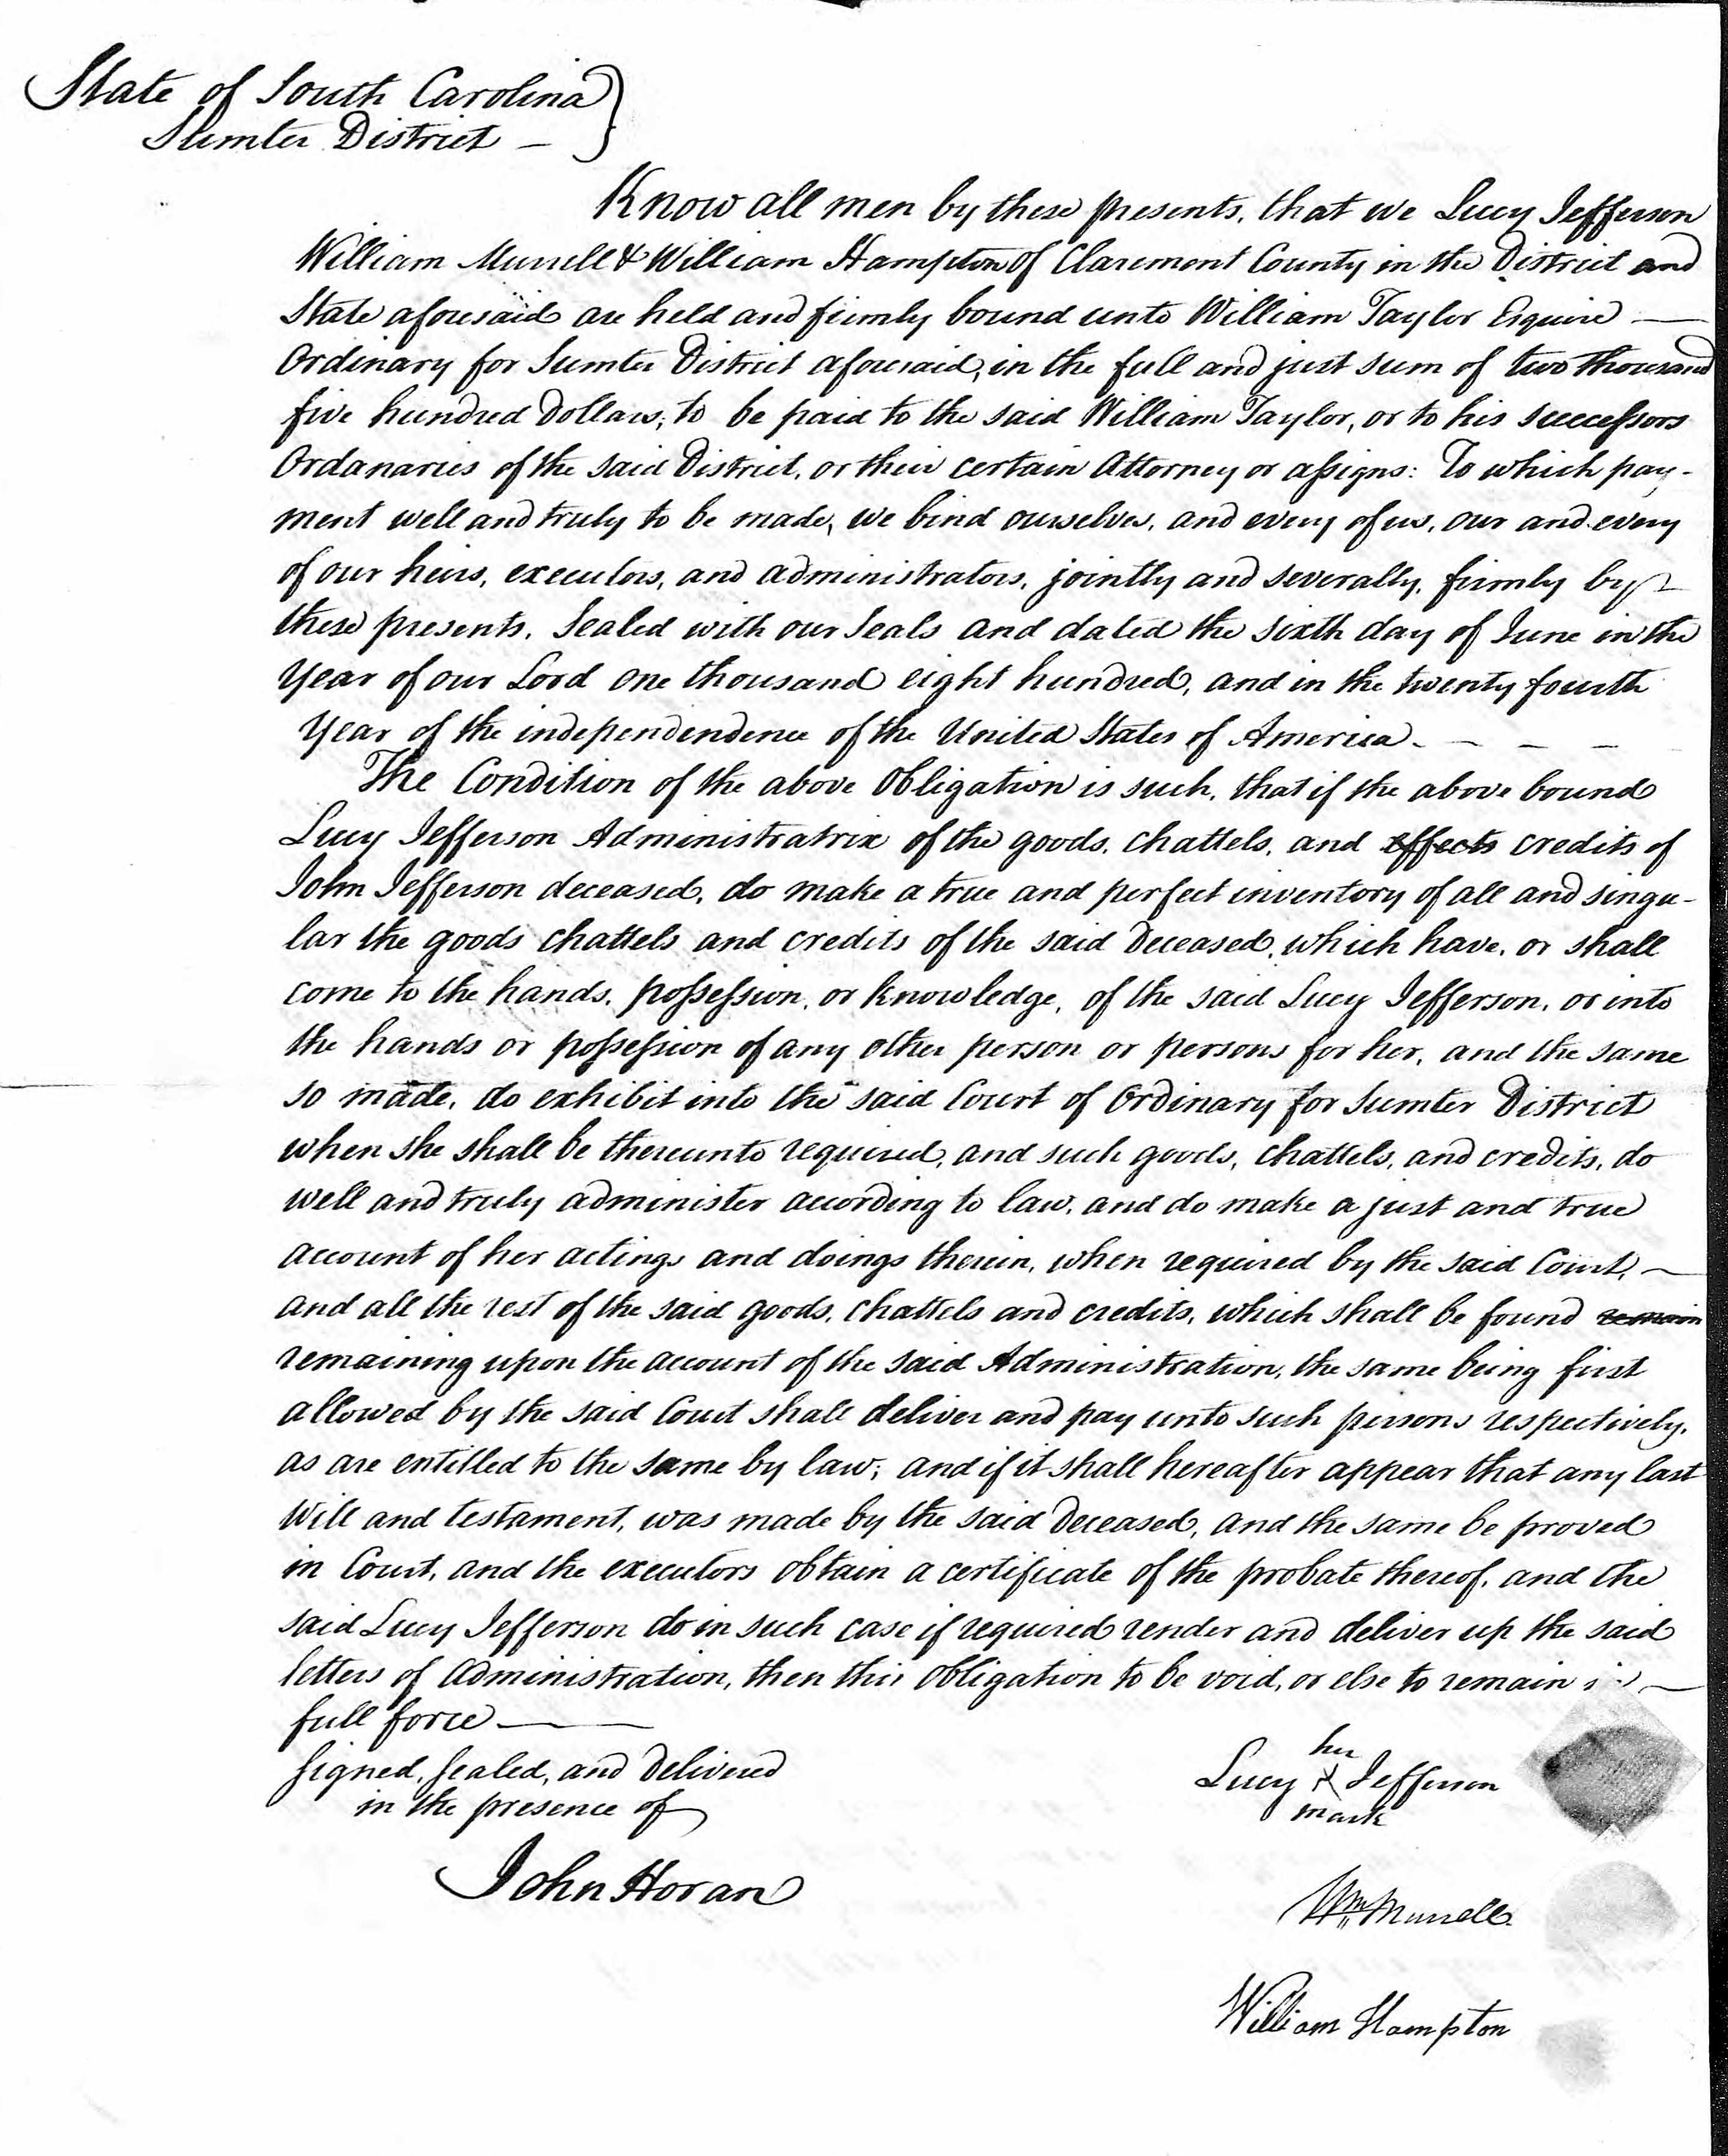 State of South Carolina }
Sumter District — }
Know all men by these presents, that we Lucy Jefferson
William Murrell & William Hampton of Claremont County in the District and
State aforesaid are held and firmly bound unto William Taylor Esquire —
Ordinary for Sumter District aforesaid, in the full and just sum of two thousand
five hundred Dollars; to be paid to the said William Taylor, or to his successors
Ordanaries of the said District, or their certain Attorney or assigns: To which pay-
ment well and truly to be made, we bind ourselves, and every of us, our and every
of our heirs, executors, and administrators, jointly and severally, firmly by
these presents. Sealed with our Seals and dated the sixth day of June in the
Year of our Lord one thousand eight hundred, and in the twenty fourth
Year of the independendence of the United States of America. — — —
The Condition of the above Obligation is such, that if the above bound
Lucy Jefferson Administratrix of the goods, chattels, and effects credits of
John Jefferson deceased, do make a true and perfect inventory of all and singu-
lar the goods chattels and credits of the said Deceased, which have, or shall
come to the hands, possession, or knowledge, of the said Lucy Jefferson, or into
the hands or possession of any other person or persons for her, and the same
so made, do exhibit into the said Court of Ordinary for Sumter District
when she shall be thereunto required, and such goods, chattels, and credits, do
well and truly administer according to law, and do make a just and true
account of her actings and doings therein, when required by the said Court, —
and all the rest of the said goods, chattels and credits, which shall be found remain
remaining upon the account of the said Administration, the same being first
allowed by the said Court shall deliver and pay unto such persons respectively,
as are entitled to the same by law; and if it shall hereafter appear that any last
Will and testament, was made by the said Deceased, and the same be proved
in Court, and the executors obtain a certificate of the probate thereof, and the
said Lucy Jefferson do in such case if required render and deliver up the said
letters of Administration, then this obligation to be void, or else to remain in —
full force —
Signed, Sealed, and Delivered
in the presence of
John Horan
her
Lucy X Jefferson
mark
Wm Murrell
William Hampton